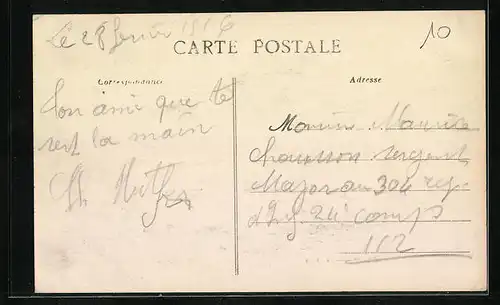 Le 28 février 1916
10
CARTE POSTALE
Correspondance
Adresse
Ton ami que te
sert la main
Ch
Monsieur Maurice
Chausson sergent
Major au 304 reg
d'Inf 24e comp
152